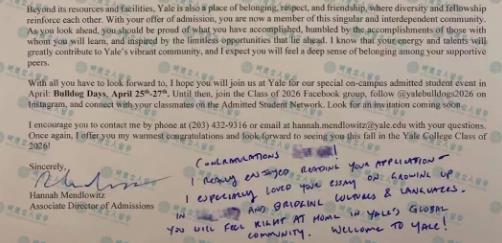 Beyond its resources and facilities, Yale is also a place of belonging, respect, and friendship, where diversity and fellowship
reinforce each other. With your offer of admission, you are now a member of this singular and interdependent community.
As you look ahead, you should be proud of what you have accomplished, humbled by the accomplishments of those
with whom you will learn, and inspired by the limitless opportunities that lie ahead. I know that your energy and talents will
greatly contribute to Yale's vibrant community, and I expect you will feel a deep sense of belonging among your supportive
peers.
With all you have to look forward to, I hope you will join us at Yale for our special on-campus admitted student event in
April: Bulldog Days, April 25th-27th. Until then, join the Class of 2026 Facebook group, follow @yalebulldogs2026 on
Instagram, and connect with your classmates on the Admitted Student Network. Look for an invitation coming soon.
I encourage you to contact me by phone at (203) 432-9316 or email at hannah.mendlowitz@yale.edu with your questions.
Once again, I offer you my warmest congratulations and look forward to seeing you this fall in the Yale College Class of
2026!
Sincerely,
Hannah Mendlowitz
Associate Director of Admissions
CONGRATULATIONS !
I REALLY ENJOYED READING YOUR APPLICATION -
I ESPECIALLY LOVED YOUR ESSAY ON GROWING UP
IN AND BRIDGING CULTURES & LANGUAGES.
YOU WILL FEEL RIGHT AT HOME IN YALE'S GLOBAL
COMMUNITY. WELCOME TO YALE!